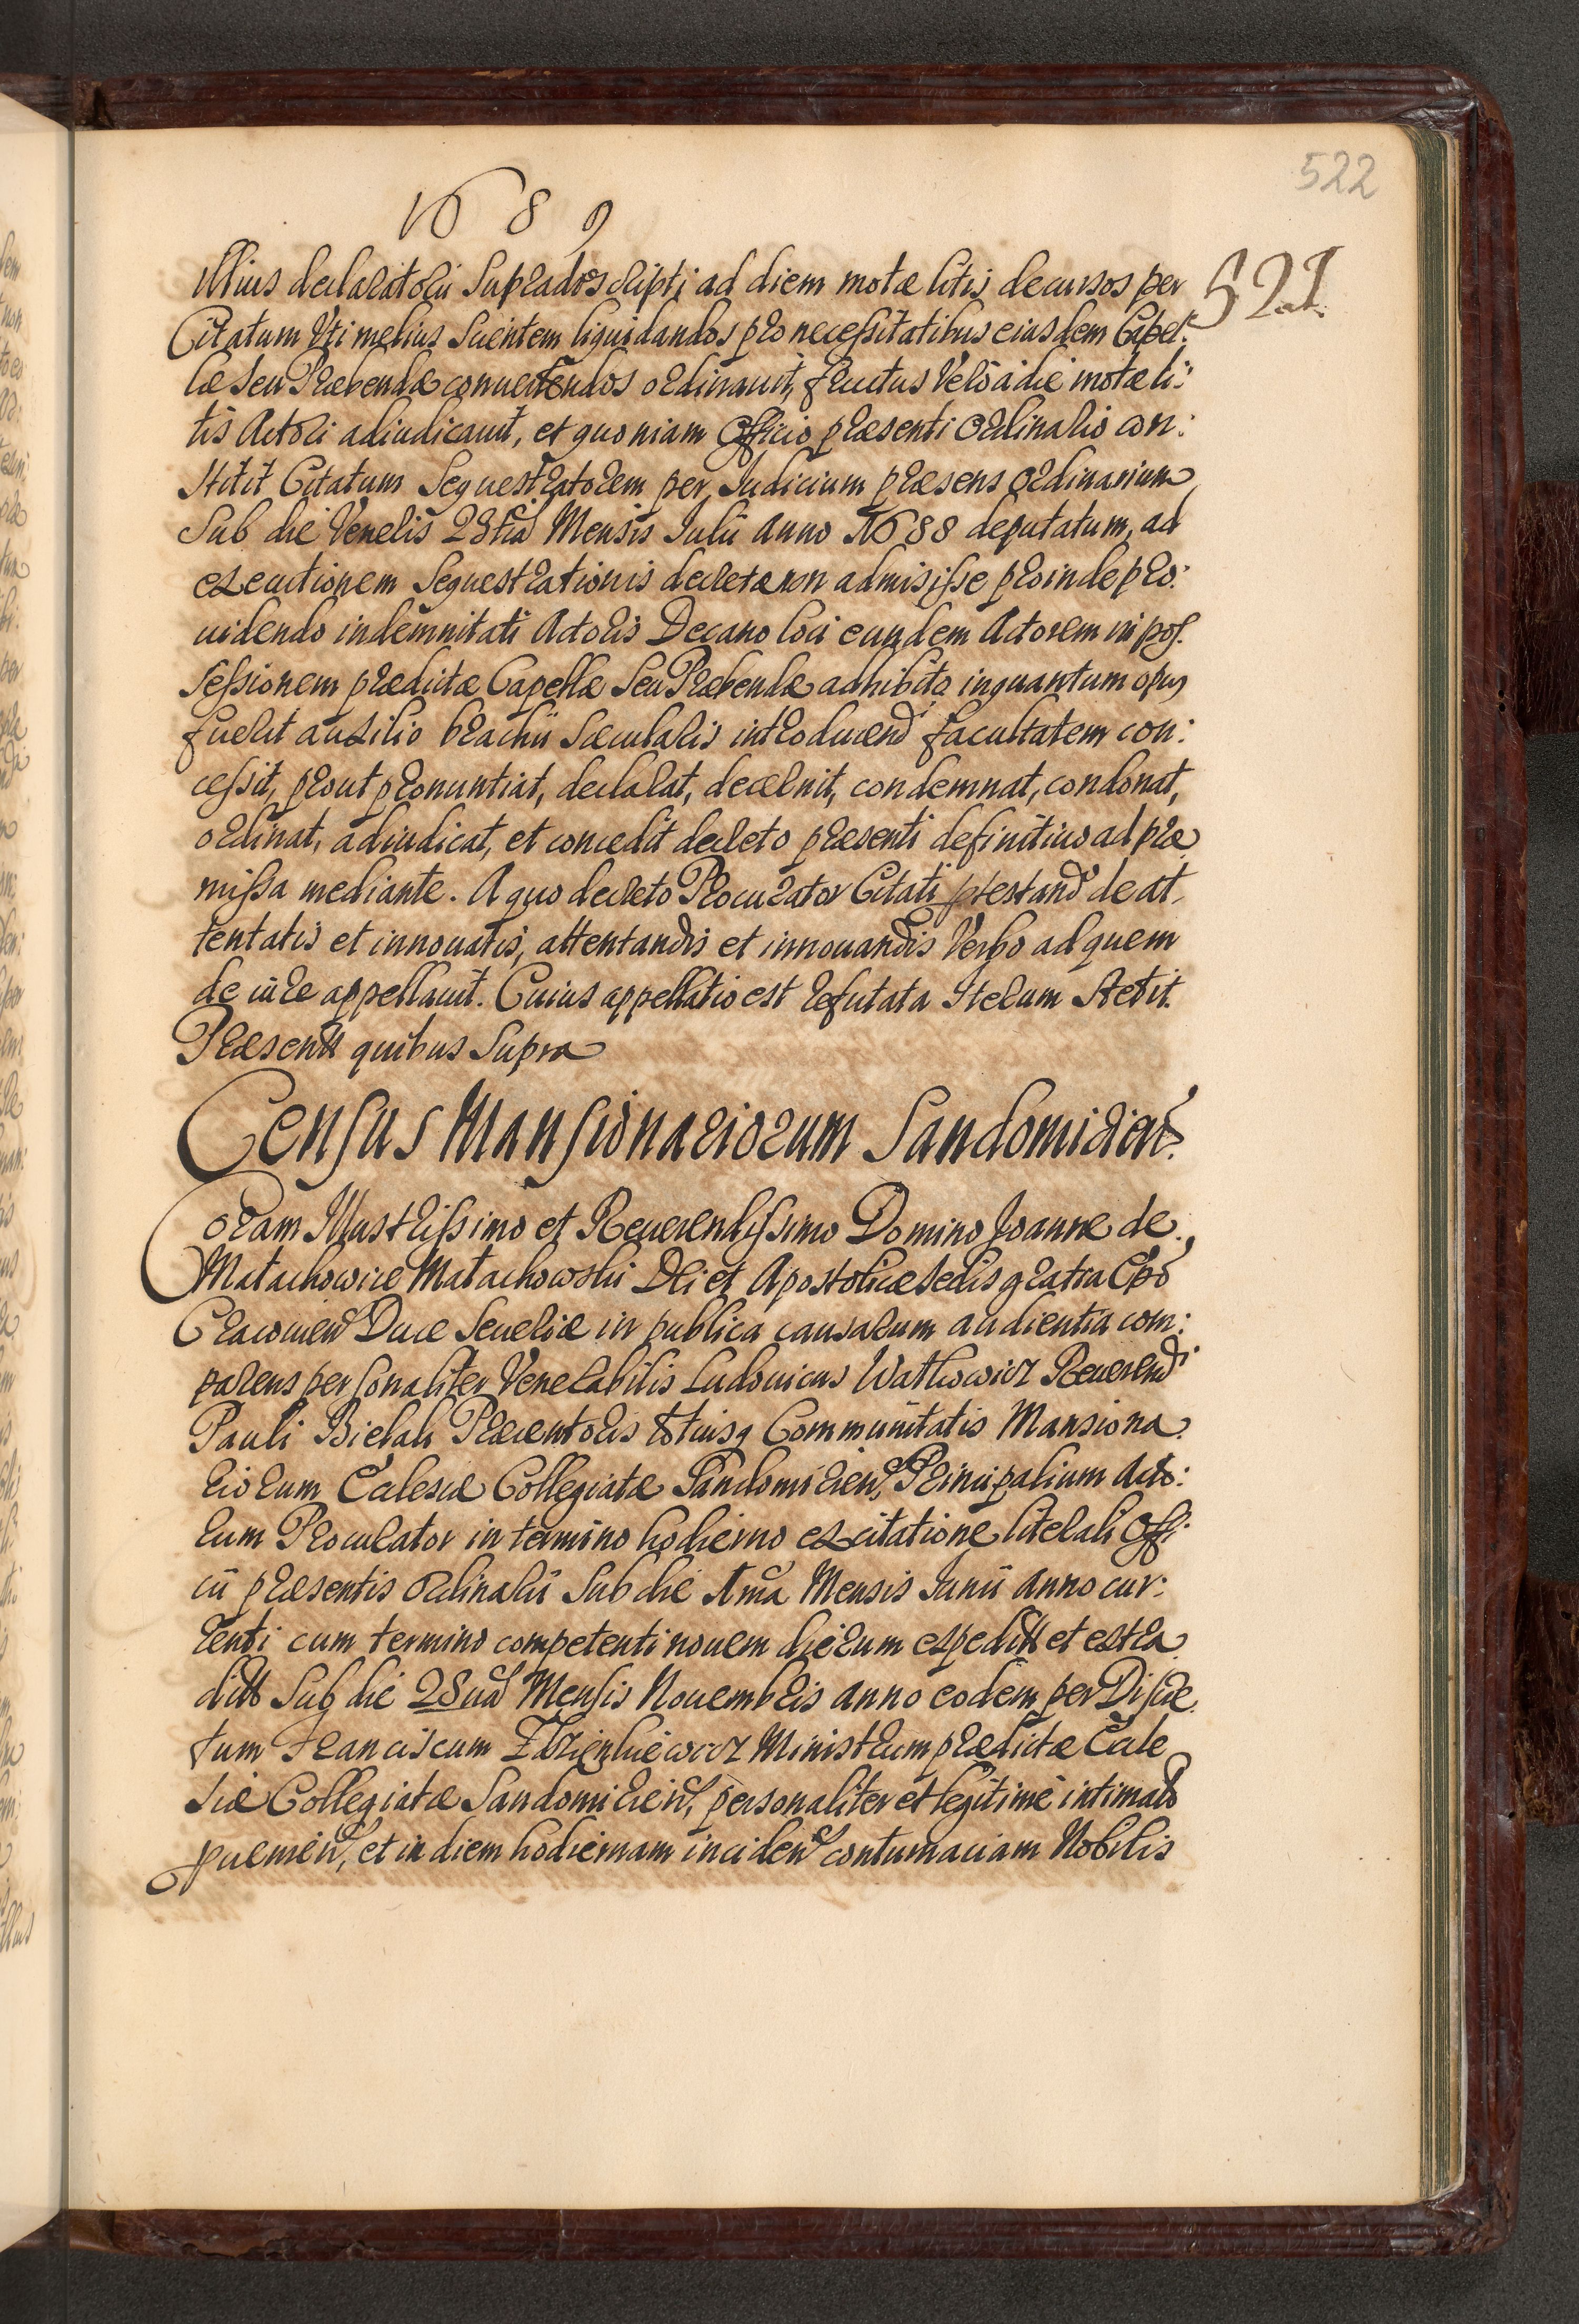 522
1689
521.
illius declaratorii supradoscripti ad diem motæ litis decursos per
Citatum Uti melius Scientem liquidandos pro necessitatibus eiusdem Capel:
læ seu Præbendæ convertendos ordinavit, fructus Verò à die motæ li:
tis Actori adiudicauit, et quoniam Officio præsenti Ordinario con:
stitit Citatum Sequestratorem per Iudicium præsens Ordinarium
Sub die Veneris 23tia Mensis Iulii Anno 1688 deputatum, ad
executionem Sequestrationis decretæ non admisisse proinde pro:
uidendo indemnitati Actoris Decano loci eundem Actorem in pos:
sessionem prædictæ Capellæ Seu Præbendæ adhibito inquantum opus
fuerit auxilio brachii sæcularis introducend facultatem con:
cessit, prout pronuntiat, declarat, decernit, condemnat, condonat,
ordinat, adiudicat, et concedit decreto præsenti definitiuo ad præ
missa mediante. A quo decreto Procurator Citati ptestand de at,
tentatis et innouatis, attentandis et innouandis Verbo ad quem
de iure appellauit. Cuius appellatio est refutata Iterum Stetit.
Præsentt quibus Supra
Census Mansionariorum Sandomirien:
Coram Illustrissimo et Reuerendissimo Domino Joanne de
Małachowice Małachowski Dei et Apostolicæ sedis gratia Epo
Cracouien Duce Seueriæ in publica causarum audientia com:
parens personaliter Venerabilis Ludouicus Watkowicz Reuerend
Pauli Bielah Præcentoris totiusq Communitatis Mansiona
riorum Ecclesiæ Collegiatæ Sandomirien, Principalium Acto:
rum Procurator in termino hodierno ex citatione literali Offi:
cii præsentis Ordinarii Sub die 1ma Mensis Iunii Anno cur:
renti cum termino competenti nouem dierum expeditt et extra
ditt Sub die 28ua Mensis Nouembris Anno eodem per Discre
tum Franciscum Zdzienkiewicz Ministrum prædictæ Eccle
siæ Collegiatæ Sandomirien, personaliter et legitimè intimato
puenien, et in diem hodiernam inciden contumaciam Nobilis